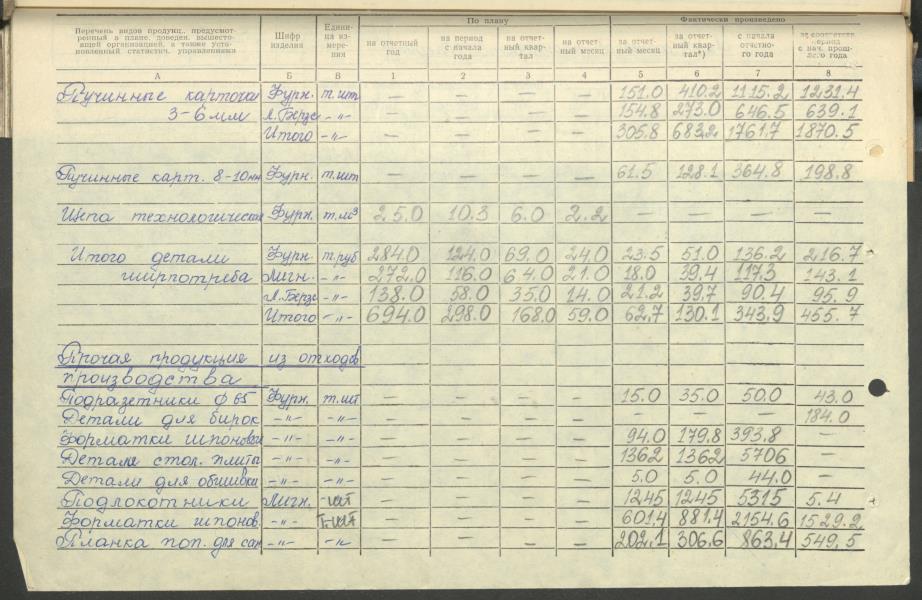 Перечень видов продукц., предусмотренный в плане, доведен. вышестоящей организацией, а также установленный статистич. управлениями | Шифр изделия | Единица измерения | По плану | Фактически произведено
на отчетный год | на период с начала года | на отчетный квартал | на отчетн. месяц | за отчетный месяц | за отчетный квартал*) | с начала отчетного года | за соответств. период с нач. прошлого года
А | Б | В | 1 | 2 | 3 | 4 | 5 | 6 | 7 | 8
Пучинные карточки | Фурн. | т.шт | — | — | — | — | 151.0 | 410.2 | 1115.2 | 1231.4
3-6 мм | Л.Берзс | -"- | — | — | — | — | 154.8 | 273.0 | 646.5 | 639.1
Итого | -"- | — | — | — | — | 305.8 | 683.2 | 1761.7 | 1870.5
Пучинные карт. 8-10мм | Фурн. | т.шт | — | — | — | — | 61.5 | 128.1 | 364.8 | 198.8
Щепа технологическая | Фурн. | т.м³ | 25.0 | 10.3 | 6.0 | 2.2 | — | — | — | —
Итого детали | Фурн. | т.руб | 284.0 | 124.0 | 69.0 | 24.0 | 23.5 | 51.0 | 136.2 | 216.7
ширпотреба | Лигн. | -"- | 272.0 | 116.0 | 64.0 | 21.0 | 18.0 | 39,4 | 117,3 | 143.1
Л.Берзс | -"- | 138.0 | 58.0 | 35.0 | 14.0 | 21.2 | 39,7 | 90.4 | 95.9
Итого | -"- | 694.0 | 298.0 | 168.0 | 59.0 | 62,7 | 130.1 | 343,9 | 455.7
Прочая продукция из отходов
производства
Подразетники ф 65 | Фурн. | т.шт | — | — | — | — | 15.0 | 35.0 | 50.0 | 43.0
Детали для бирок | -"- | -"- | — | — | — | — | — | — | — | 184.0
Форматки шпоновые | -"- | -"- | — | — | — | — | 94.0 | 179,8 | 393,8 | —
Детали стол. плиты | -"- | -"- | — | — | — | — | 1362 | 1362 | 5706 | —
Детали для обшивки | -"- | -"- | — | — | — | — | 5.0 | 5.0 | 44.0 | —
Подлокотники | Лигн. | -шт | — | — | — | — | 1245 | 1245 | 5315 | 5.4
Форматки шпонов. | -"- | т-шт | — | — | — | — | 601,4 | 881,4 | 2154.6 | 1529.2
Планка поп. для сан | -"- | -"- | — | — | — | — | 202,1 | 306,6 | 863,4 | 549,5